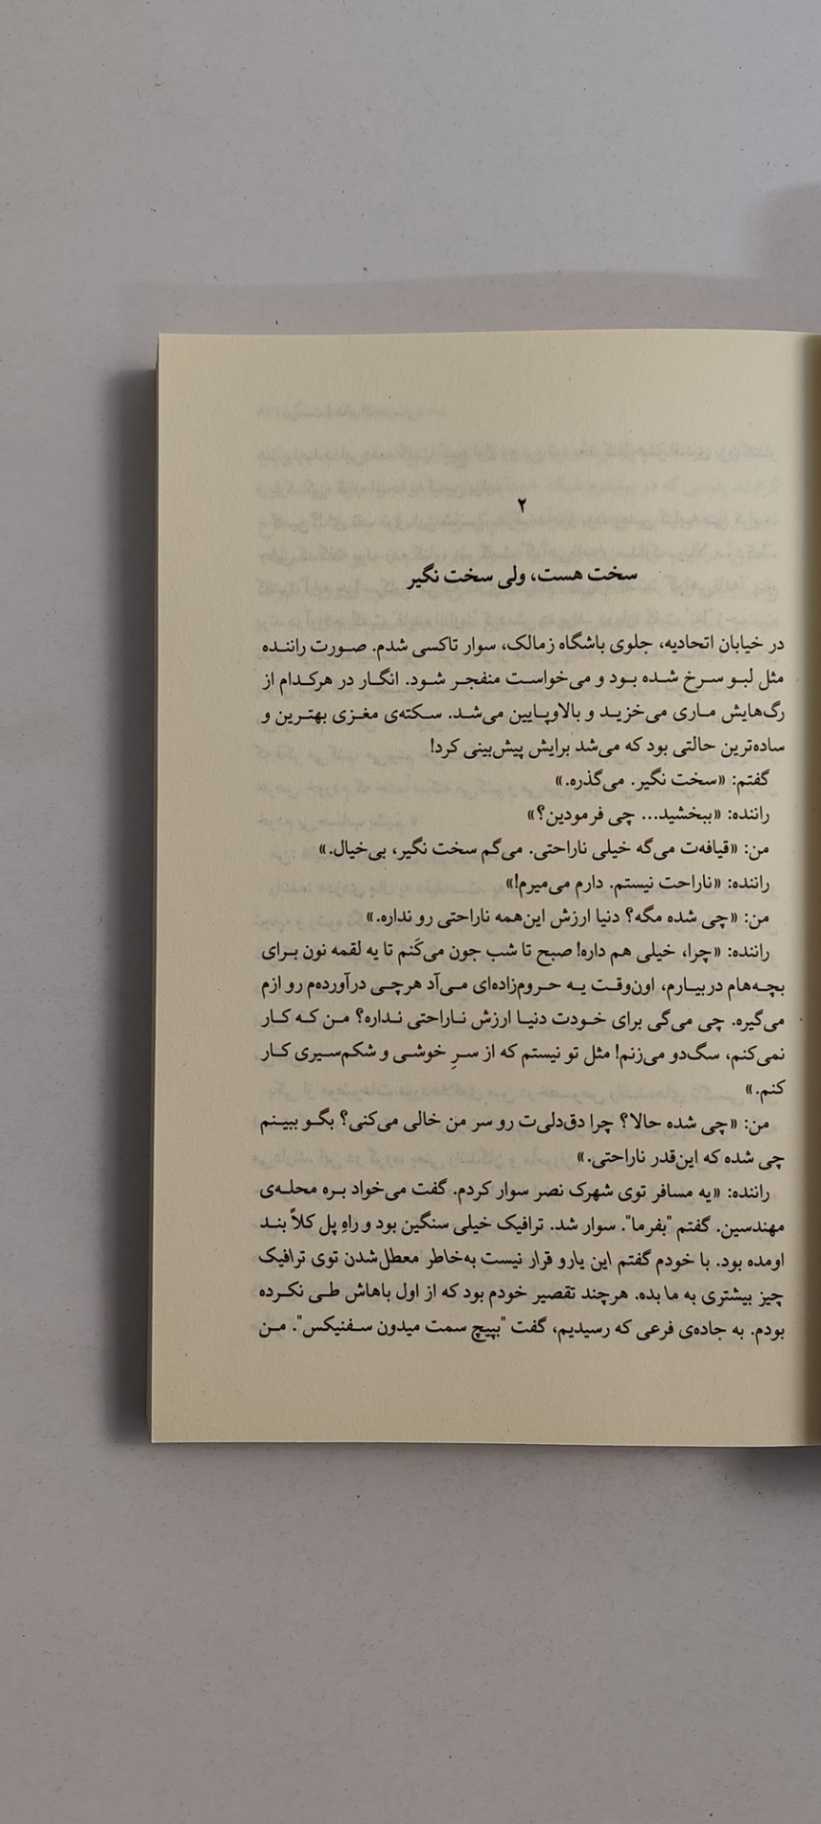 ۲
سخت هست، ولی سخت نگیر
در خیابان اتحادیه، جلوی باشگاه زمالک، سوار تاکسی شدم. صورت راننده
مثل لبو سرخ شده بود و می‌خواست منفجر شود. انگار در هرکدام از
رگ‌هایش ماری می‌خزید و بالاوپایین می‌شد. سکته‌ی مغزی بهترین و
ساده‌ترین حالتی بود که می‌شد برایش پیش‌بینی کرد!
گفتم: «سخت نگیر. می‌گذره.»
راننده: «ببخشید... چی فرمودین؟»
من: «قیافه‌ت می‌گه خیلی ناراحتی. می‌گم سخت نگیر، بی‌خیال.»
راننده: «ناراحت نیستم. دارم می‌میرم!»
من: «چی شده مگه؟ دنیا ارزش این‌همه ناراحتی رو نداره.»
راننده: «چرا، خیلی هم داره! صبح تا شب جون می‌کَنم تا یه لقمه نون برای
بچه‌هام دربیارم، اون‌وقت یه حروم‌زاده‌ای می‌آد هرچی درآورده‌م رو ازم
می‌گیره. چی می‌گی برای خودت دنیا ارزش ناراحتی نداره؟ من که کار
نمی‌کنم، سگ‌دو می‌زنم! مثل تو نیستم که از سرِ خوشی و شکم‌سیری کار
کنم.»
من: «چی شده حالا؟ چرا دق‌دلی‌ت رو سر من خالی می‌کنی؟ بگو ببینم
چی شده که این‌قدر ناراحتی.»
راننده: «یه مسافر توی شهرک نصر سوار کردم. گفت می‌خواد بره محله‌ی
مهندسین. گفتم "بفرما". سوار شد. ترافیک خیلی سنگین بود و راهِ پل کلاً بند
اومده بود. با خودم گفتم این یارو قرار نیست به‌خاطر معطل‌شدن توی ترافیک
چیز بیشتری به ما بده. هرچند تقصیر خودم بود که از اول باهاش طی نکرده
بودم. به جاده‌ی فرعی که رسیدیم، گفت "بپیچ سمت میدون سفنیکس". من